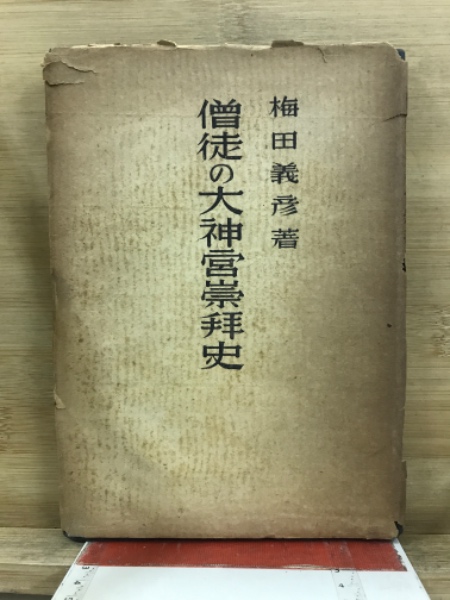 梅田義彦著
僧徒の大神宮崇拜史